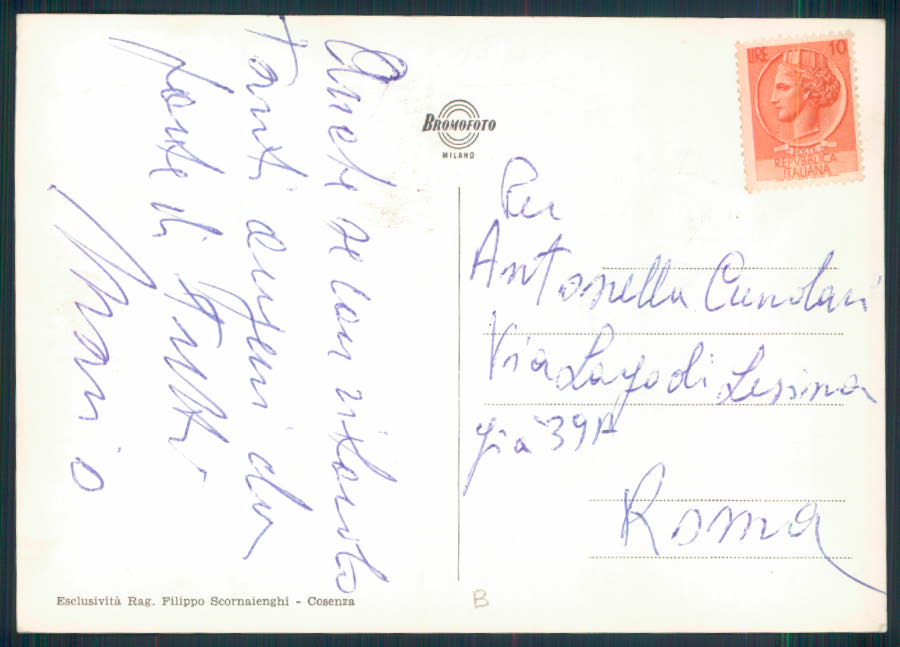 Anche se con ritardo
Tanti auguri da
parte di Tutti
Mario
BROMOFOTO
MILANO
LIRE 10
POSTE
REPVBBLICA
ITALIANA
Per
Antonella
Via Lago di Lesina
già 39A
Roma
Esclusività Rag. Filippo Scornaienghi - Cosenza
B